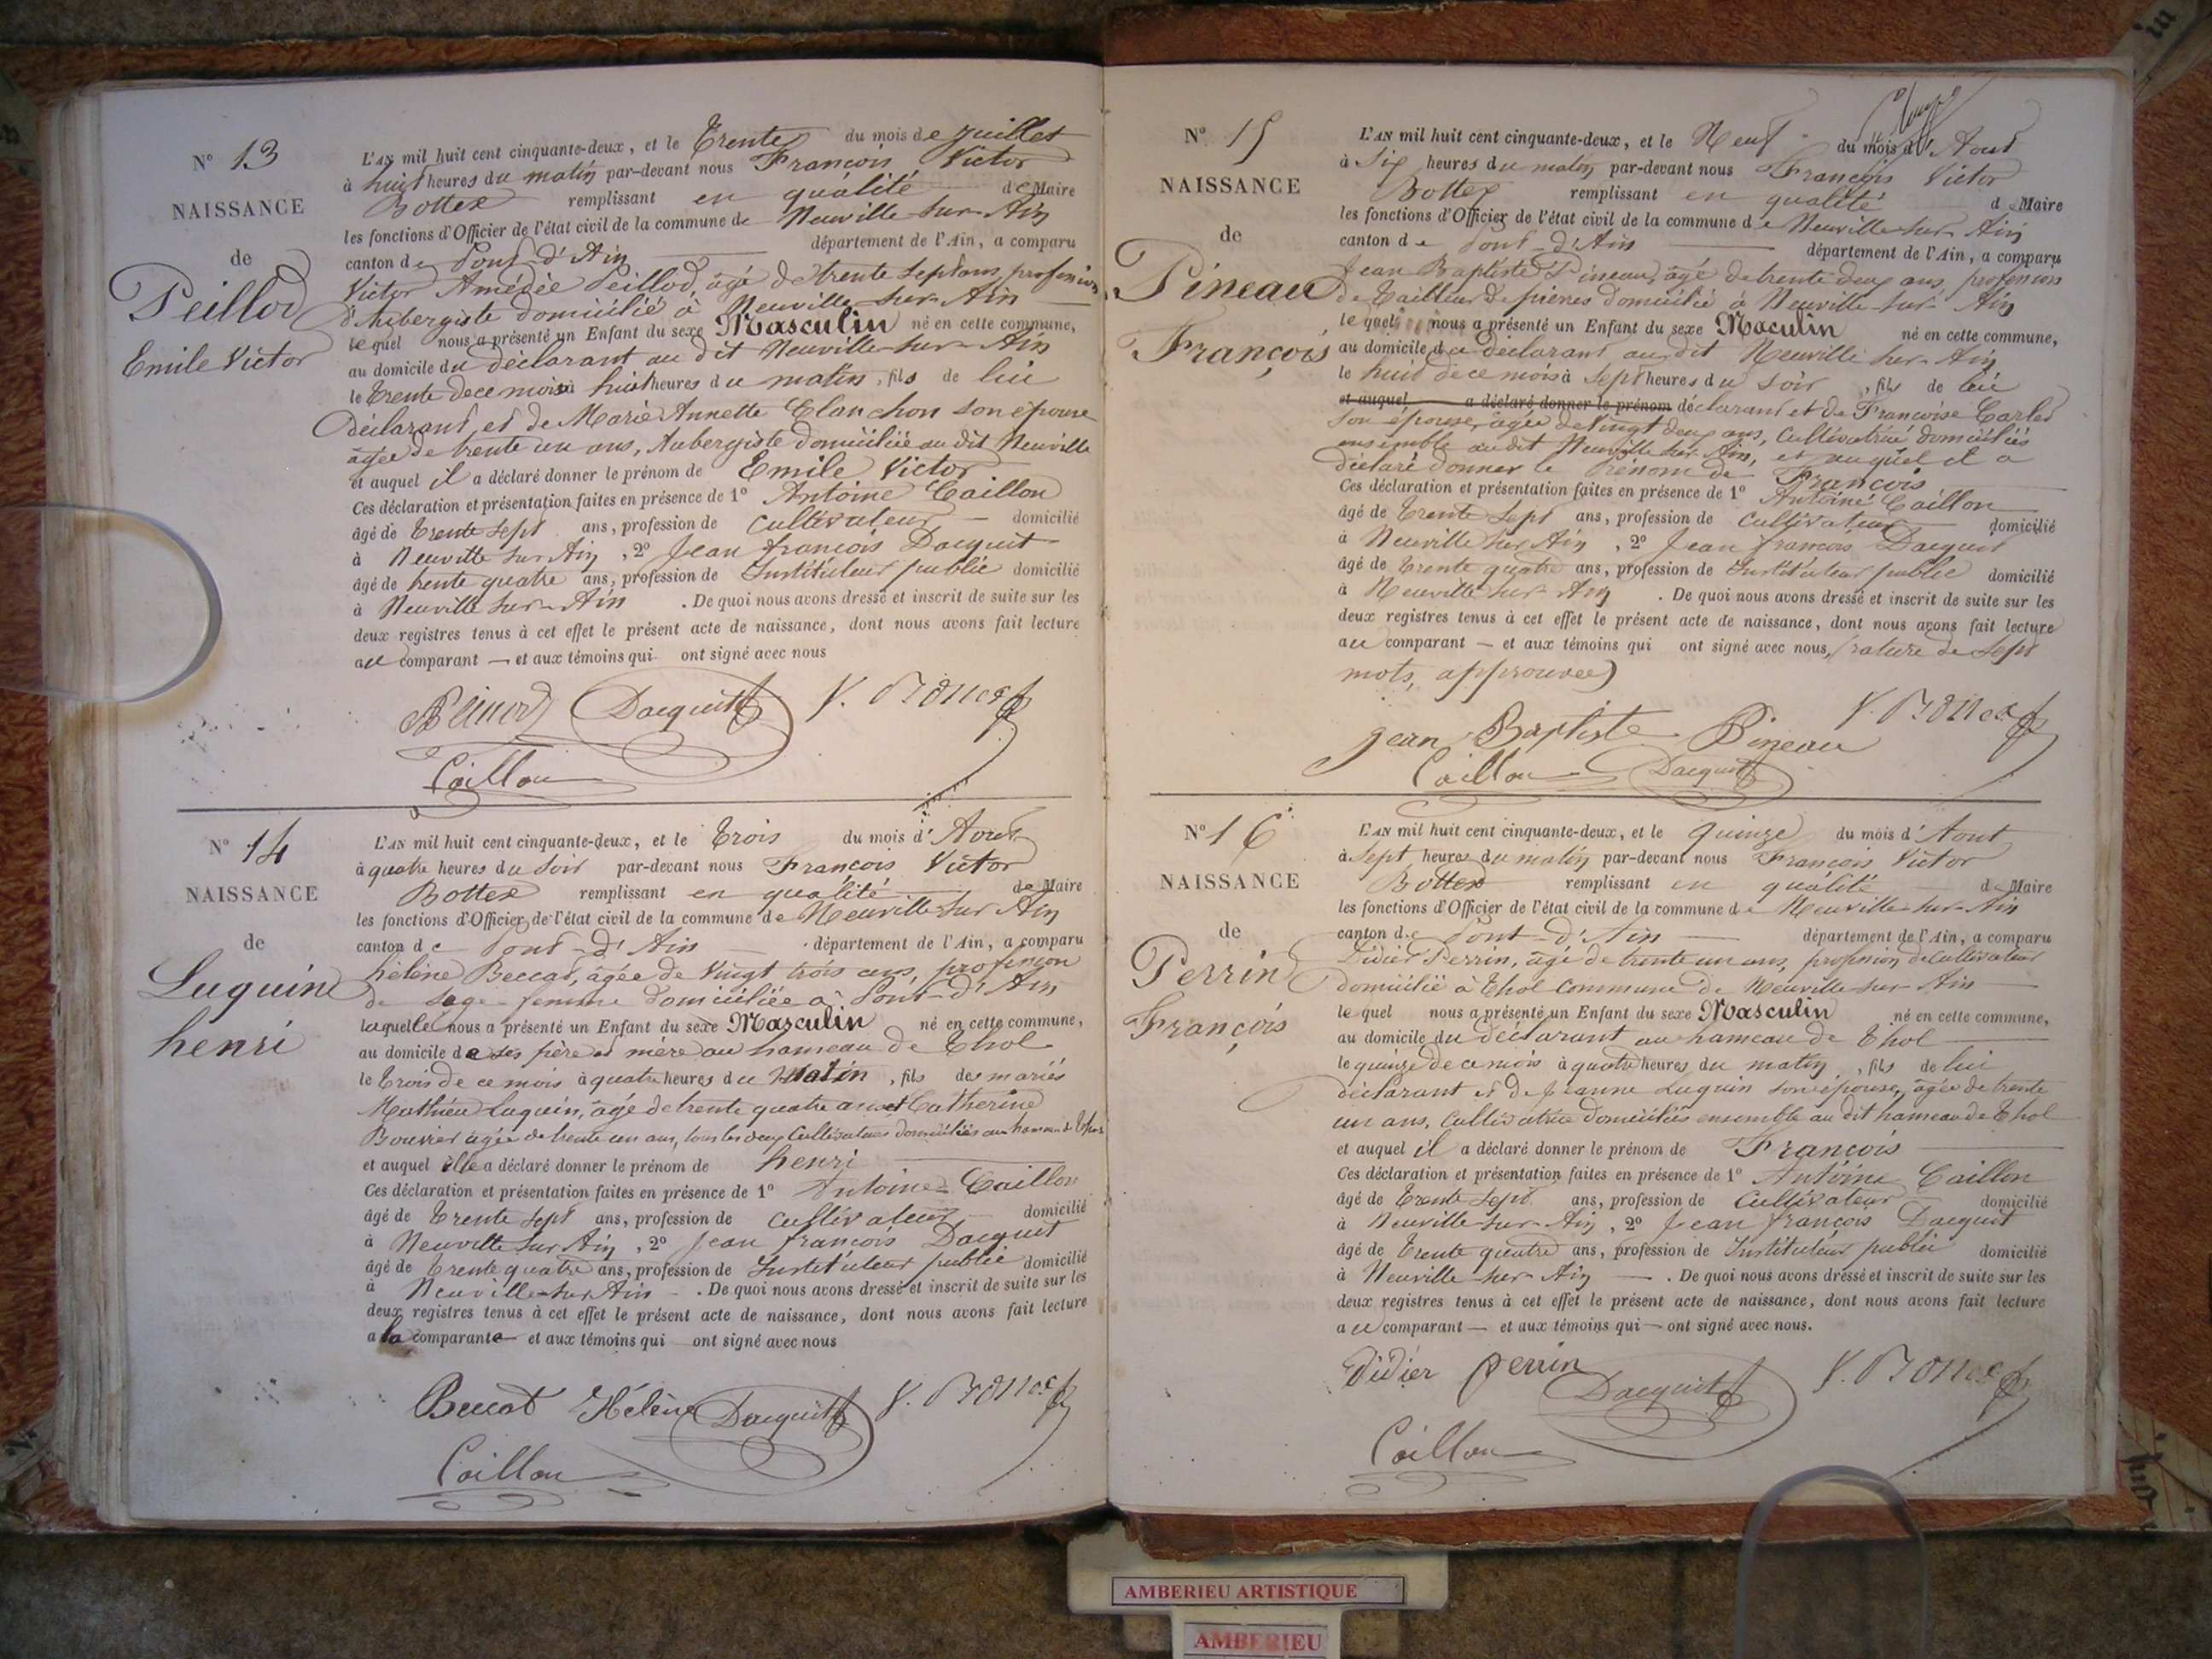 N° 13
NAISSANCE
de
Peillod
Emile Victor
L'AN mil huit cent cinquante-deux, et le Trente du mois de Juillet
à huit heures du matin par-devant nous François Victor
Bottex remplissant en qualité de Maire
les fonctions d'Officier de l'état civil de la commune de Neuville sur Ain
canton de Pont-d'Ain département de l'Ain, a comparu
Victor Amédée Peillod, âgé de trente sept ans, profession
d'Aubergiste domicilié à Neuville-sur-Ain
lequel nous a présenté un Enfant du sexe Masculin né en cette commune,
au domicile du déclarant au dit Neuville-sur-Ain
le Trente de ce mois à huit heures du matin, fils de lui
déclarant, et de Marie Annette Clanchon son épouse
âgée de trente un ans, Aubergiste domiciliée au dit Neuville
et auquel il a déclaré donner le prénom de Emile Victor
Ces déclaration et présentation faites en présence de 1° Antoine Caillon
âgé de Trente sept ans, profession de Cultivateur domicilié
à Neuville sur Ain, 2° Jean françois Dacquit
âgé de trente quatre ans, profession de Instituteur public domicilié
à Neuville sur-Ain. De quoi nous avons dressé et inscrit de suite sur les
deux registres tenus à cet effet le présent acte de naissance, dont nous avons fait lecture
au comparant — et aux témoins qui ont signé avec nous
Dacquit V. Bottex
Caillon
N° 14
NAISSANCE
de
Luquin
henri
L'AN mil huit cent cinquante-deux, et le Trois du mois d'Aout
à quatre heures du Soir par-devant nous François Victor
Bottex remplissant en qualité de Maire
les fonctions d'Officier de l'état civil de la commune de Neuville sur Ain
canton de Pont-d'Ain département de l'Ain, a comparu
hélène Beccat, âgée de Vingt trois ans, profession
de sage-femme domiciliée à Pont-d'Ain
laquelle nous a présenté un Enfant du sexe Masculin né en cette commune,
au domicile de ses père et mère au hameau de Thol
le Trois de ce mois à quatre heures du Matin, fils des mariés
Mathieu Luquin, âgé de trente quatre ans et Catherine
Bouvier âgée de trente un ans, tous les deux Cultivateurs domiciliés au hameau de Thol
et auquel elle a déclaré donner le prénom de henri
Ces déclaration et présentation faites en présence de 1° Antoine Caillon
âgé de Trente sept ans, profession de Cultivateur domicilié
à Neuville sur Ain, 2° Jean françois Dacquit
âgé de trente quatre ans, profession de Instituteur public domicilié
à Neuville-sur Ain. De quoi nous avons dressé et inscrit de suite sur les
deux registres tenus à cet effet le présent acte de naissance, dont nous avons fait lecture
a la comparante et aux témoins qui ont signé avec nous
Beccat Hélène Dacquit V. Bottex
Caillon
N° 15
NAISSANCE
de
Pineau
François
L'AN mil huit cent cinquante-deux, et le Neuf du mois d'Aout
à Six heures du matin par-devant nous François Victor
Bottex remplissant en qualité de Maire
les fonctions d'Officier de l'état civil de la commune de Neuville-sur Ain
canton de Pont-d'Ain département de l'Ain, a comparu
Jean Baptiste Pineau, âgé de trente deux ans, profession
de Tailleur de pierres domicilié à Neuville-sur-Ain
lequel nous a présenté un Enfant du sexe Maculin né en cette commune,
au domicile du déclarant au dit Neuville sur-Ain
le huit de ce mois à Sept heures du Soir, fils de lui
et auquel a déclaré donner le prénom déclarant et de Françoise Carled
son épouse, âgée de Vingt deux ans, Cultivatrice domiciliés
ensemble au dit Neuville sur Ain, et auquel il a
déclaré donner le Prénom de François
Ces déclaration et présentation faites en présence de 1° Antoine Caillon
âgé de Trente sept ans, profession de Cultivateur domicilié
à Neuville sur Ain, 2° Jean françois Dacquit
âgé de Trente quatre ans, profession de Instituteur public domicilié
à Neuville sur-Ain. De quoi nous avons dressé et inscrit de suite sur les
deux registres tenus à cet effet le présent acte de naissance, dont nous avons fait lecture
au comparant — et aux témoins qui ont signé avec nous, (rature de Sept
mots, approuvée)
Jean Baptiste Pineau V. Bottex
Caillon Dacquit
N° 16
NAISSANCE
de
Perrin
François
L'AN mil huit cent cinquante-deux, et le quinze du mois d'Aout
à Sept heures du matin par-devant nous François Victor
Bottex remplissant en qualité de Maire
les fonctions d'Officier de l'état civil de la commune de Neuville-sur-Ain
canton de Pont-d'Ain département de l'Ain, a comparu
Didier Perrin, âgé de trente un ans, profession de Cultivateur
domicilié à Thol Commune de Neuville-sur-Ain
lequel nous a présenté un Enfant du sexe Masculin né en cette commune,
au domicile du déclarant au hameau de Thol
le quinze de ce mois à quatre heures du matin, fils de lui
déclarant et de Jeanne Luquin son épouse, âgée de trente
un ans, Cultivatrice domiciliés ensemble au dit hameau de Thol
et auquel il a déclaré donner le prénom de François
Ces déclaration et présentation faites en présence de 1° Antoine Caillon
âgé de Trente Sept ans, profession de Cultivateur domicilié
à Neuville-sur-Ain, 2° Jean françois Dacquit
âgé de Trente quatre ans, profession de Instituteur public domicilié
à Neuville-sur-Ain — . De quoi nous avons dressé et inscrit de suite sur les
deux registres tenus à cet effet le présent acte de naissance, dont nous avons fait lecture
au comparant — et aux témoins qui — ont signé avec nous.
Didier Perrin Dacquit V. Bottex
Caillon
AMBERIEU ARTISTIQUE
AMBERIEU